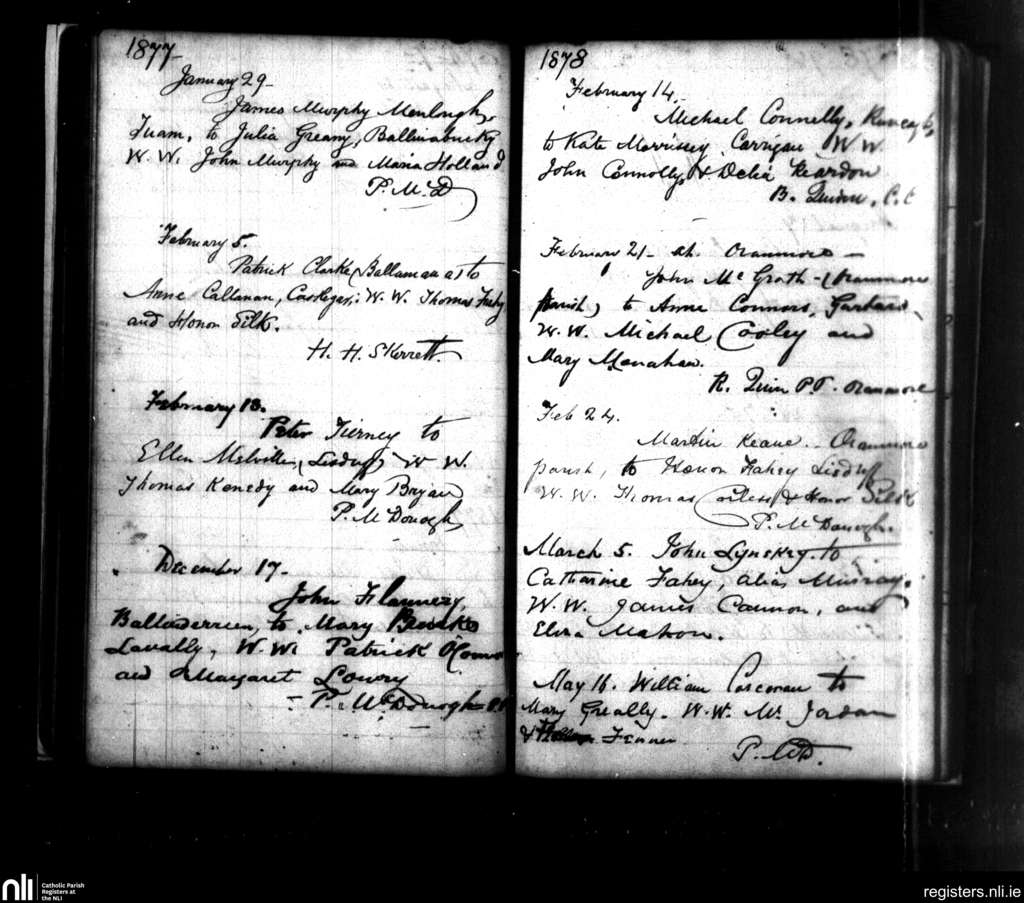 1877
January 29
James Murphy Menlough,
Tuam, to Julia Greany,
W. W. John Murphy and Maria Holland
P. McD
February 5.
Patrick Clarke, to
Anne Callanan, Castlegar; W. W. Thomas Fahy
and Honor Silk.
H. H. Skerrett
February 13.
Peter Tierney to
Ellen Melville, Lisduff, W W.
Thomas Kenedy and Mary Bryan
P. McDonogh
December 17-
John Flannery,
Ballinderreen, to Mary Burke
Lavally, W. W. Patrick O'Connor
and Margaret Lowry
- P. McDonogh P.P.
1878
February 14.
Michael Connelly,
to Kate Morrissey, Carrigan W W.
John Connolly, & Delia Reardon
B. Quinn, C.C
February 21 - at Oranmore -
John McGrath - (Oranmore
parish) to Anne Connors,
W. W. Michael Cooley and
Mary Monahan.
R. Quin P.P. Oranmore
Feb 24.
Martin Keane.. Oranmore
parish, to Honor Fahey Lisduff
W. W. Thomas Corless & Honor Silk
P. McDonogh.
March 5. John Lynskey to
Catharine Fahey, alias Murray.
W. W. James Cannon, and
Eliza Mahon.
May 16. William Corcoran to
Mary Greally. W. W. Jordan
& Fenner
P. McD.
nli Catholic Parish
Registers at
the NLI
registers.nli.ie